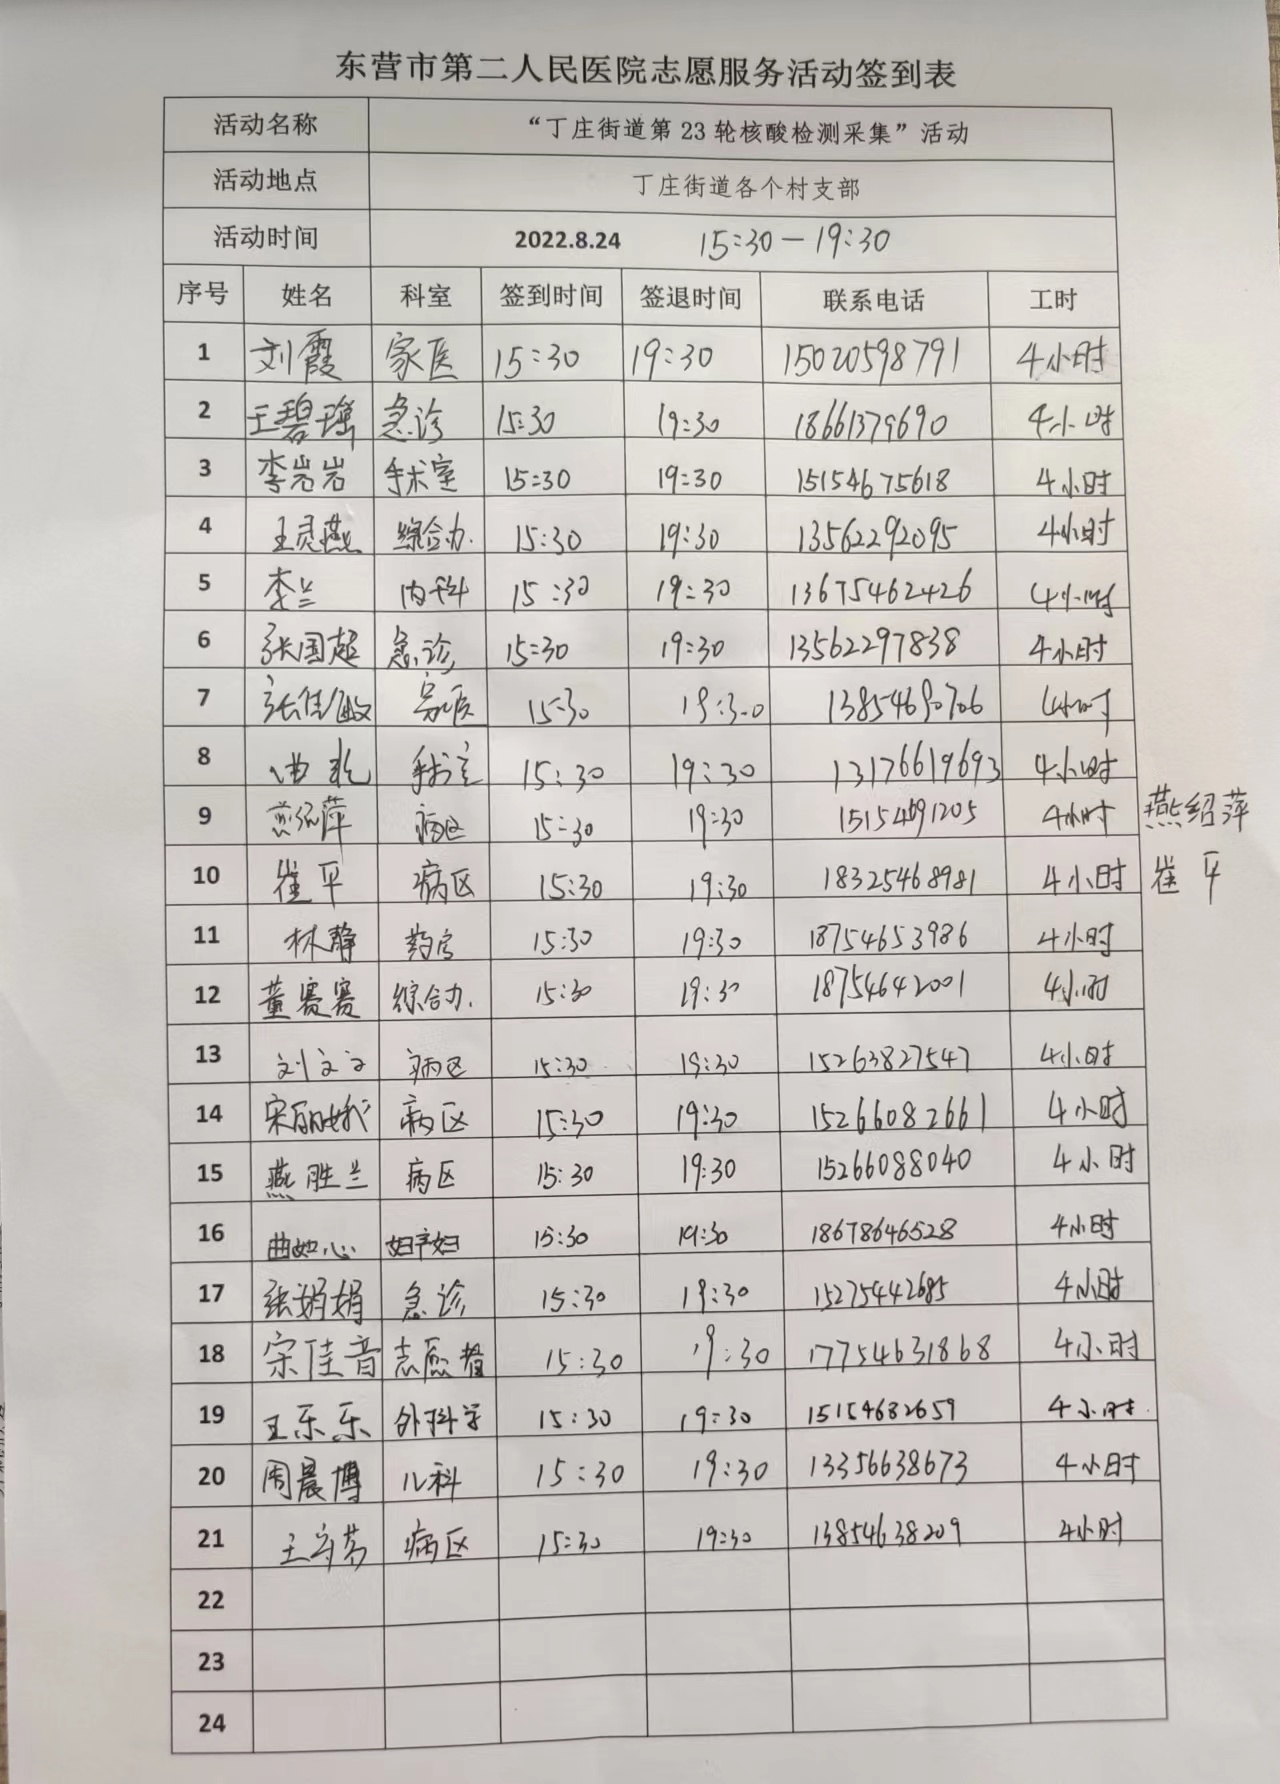 东营市第二人民医院志愿服务活动签到表
活动名称 “丁庄街道第 23 轮核酸检测采集”活动
活动地点 丁庄街道各个村支部
活动时间 2022.8.24 15:30-19:30
序号 姓名 科室 签到时间 签退时间 联系电话 工时
1 刘霞 家医 15:30 19:30 15020598791 4小时
2 王碧瑶 急诊 15:30 19:30 18661379690 4小时
3 李岩岩 手术室 15:30 19:30 15154675618 4小时
4 王灵燕 综合办 15:30 19:30 13562292095 4小时
5 李兰 内科 15:30 19:30 13675462426 4小时
6 张国超 急诊 15:30 19:30 13562297838 4小时
7 张佳敏 家医 15:30 19:30 4小时
8 手术室 15:30 19:30 13176619693 4小时
9 燕绍萍 病区 15:30 19:30 15154691205 4小时 燕绍萍
10 崔平 病区 15:30 19:30 18325468981 4小时 崔平
11 林静 药房 15:30 19:30 18754653986 4小时
12 董赛赛 综合办 15:30 19:30 18754642001 4小时
13 刘文文 病区 15:30 19:30 15263827547 4小时
14 宋丽娥 病区 15:30 19:30 15266082661 4小时
15 燕胜兰 病区 15:30 19:30 15266088040 4小时
16 曲如心 妇产妇 15:30 19:30 18678646528 4小时
17 张娟娟 急诊 15:30 19:30 15275442685 4小时
18 宋佳音 志愿者 15:30 19:30 17754631868 4小时
19 王乐乐 外科学 15:30 19:30 15154682659 4小时
20 周晨博 儿科 15:30 19:30 13356638673 4小时
21 病区 15:30 19:30 13854638209 4小时
22
23
24